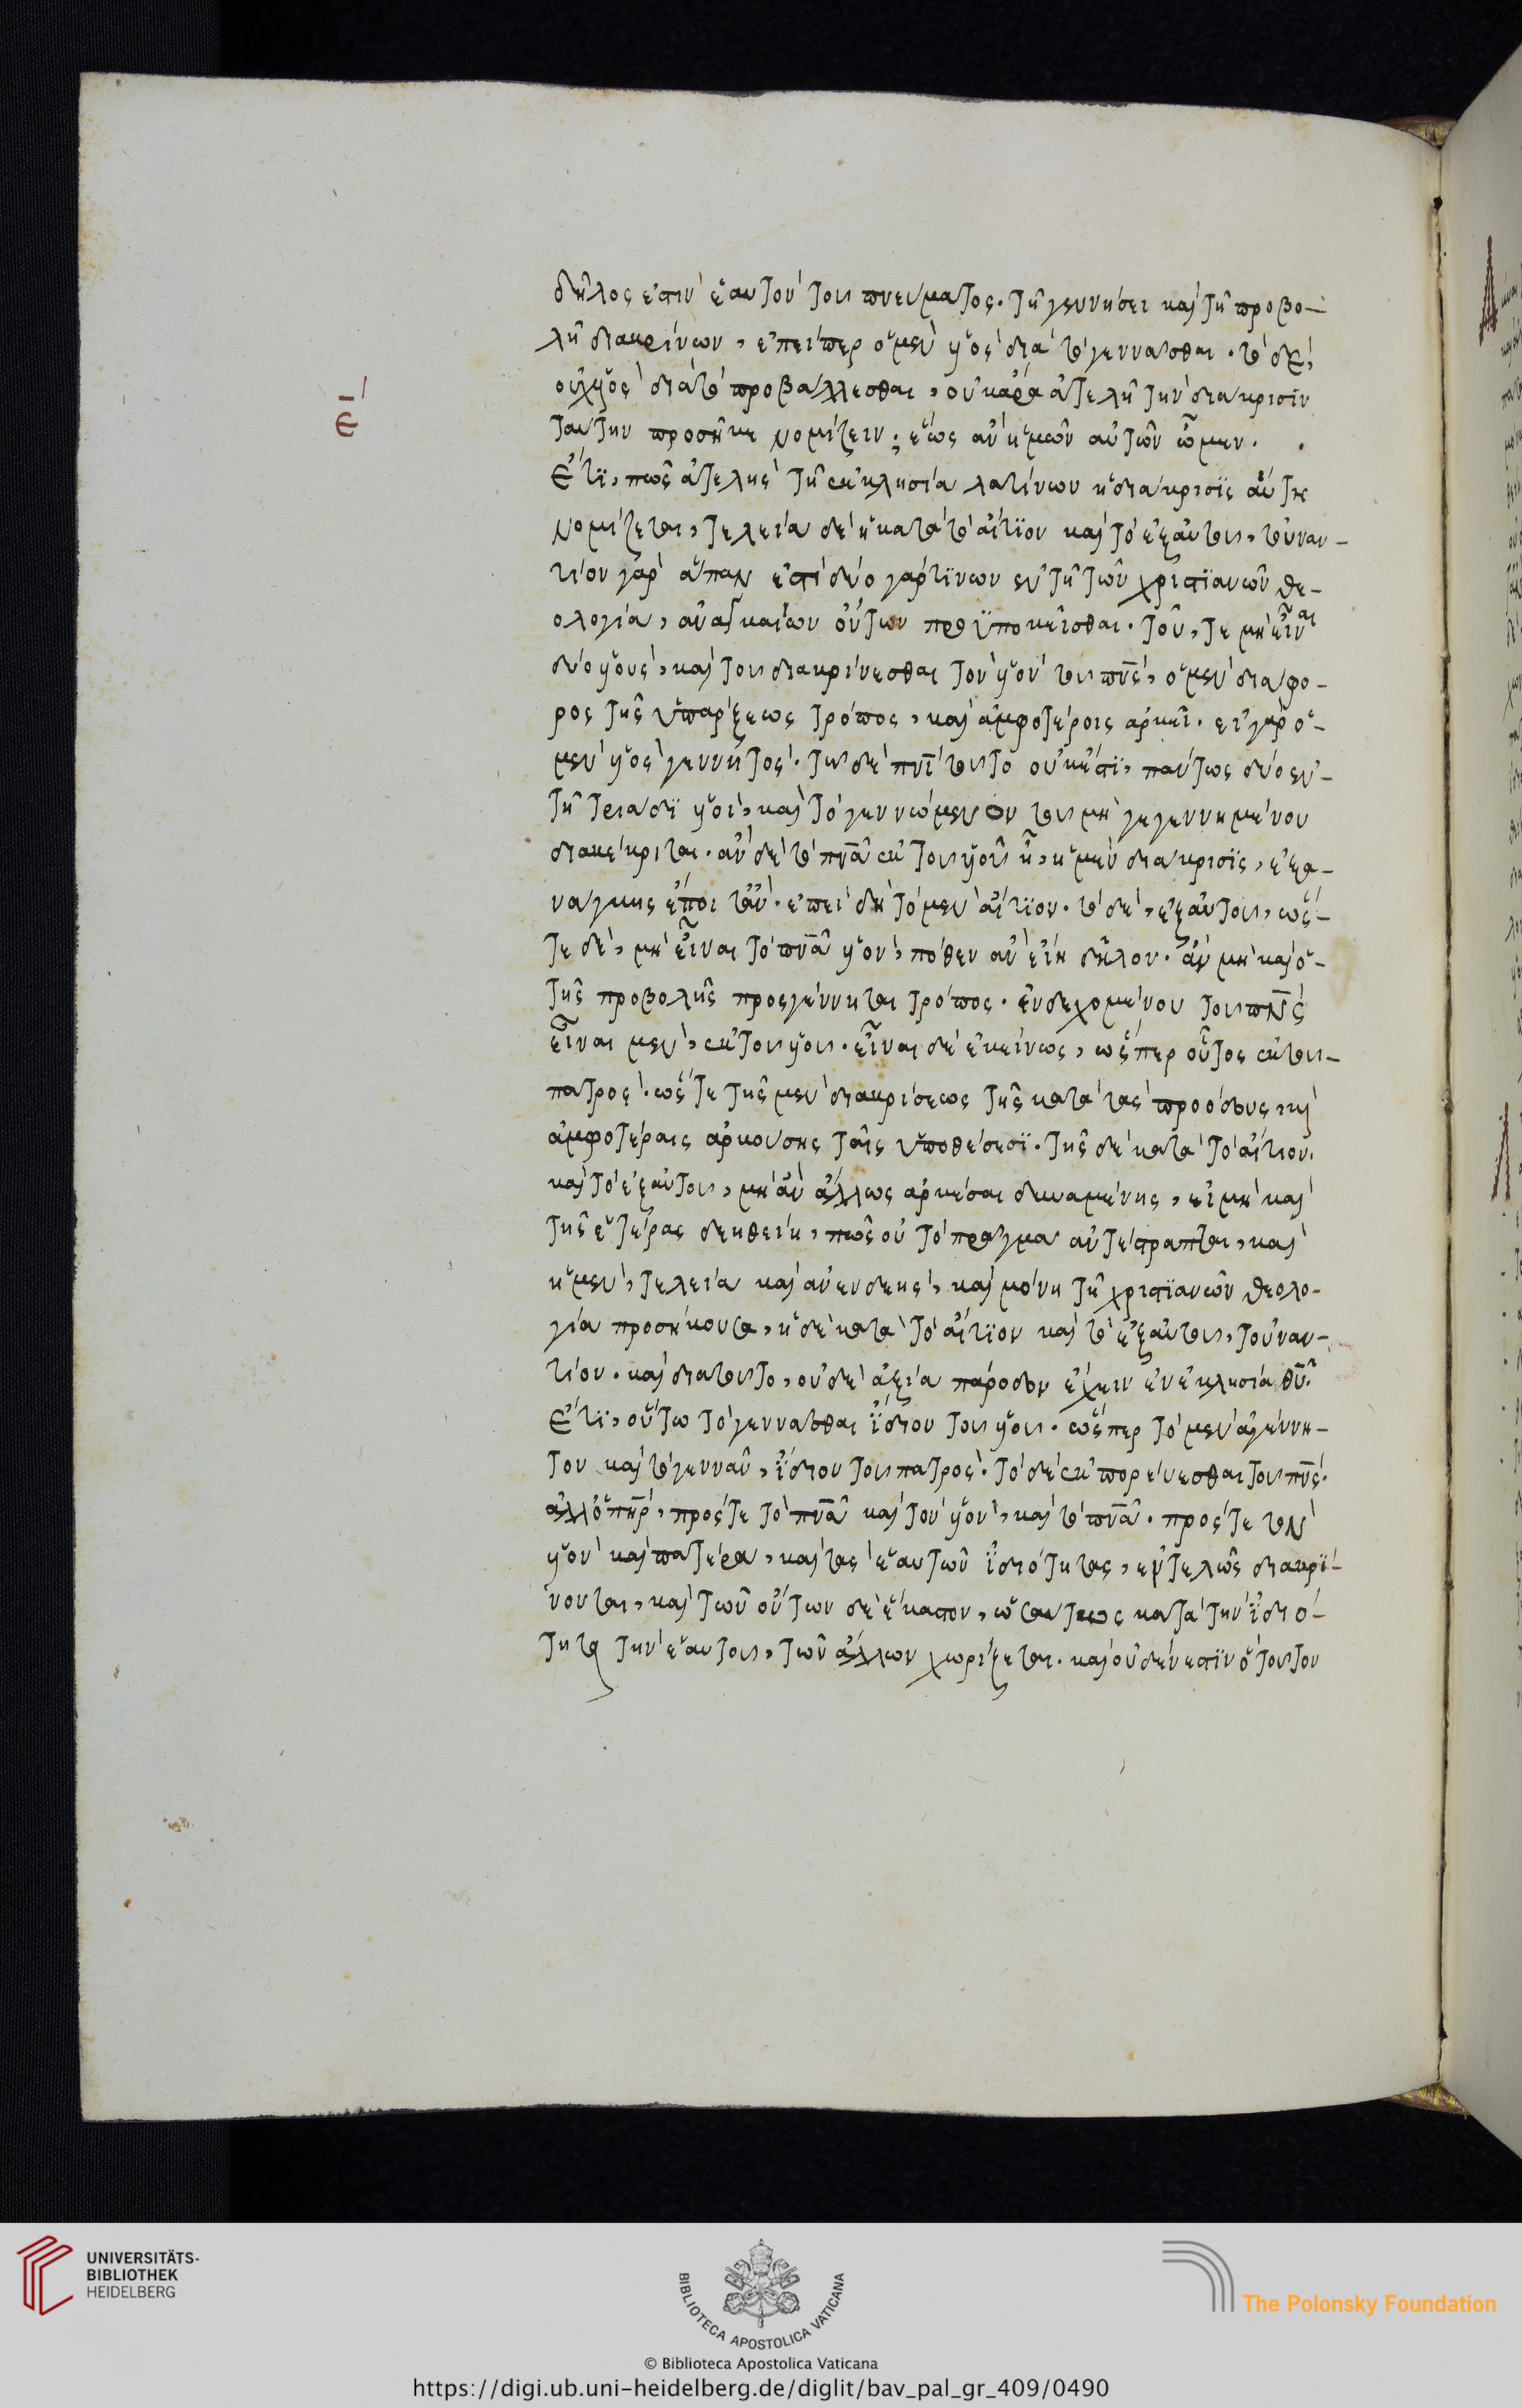 δῆλός ἐστιν ἑαυτὸν τοῦ πνεύματος. τῇ γεννήσει καὶ τῇ προβο-
λῇ διακρίνων, ἐπείπερ ὁ μὲν υἱὸς διὰ τὸ γεννᾶσθαι. τὸ δὲ,
οὐχ υἱὸς διὰ τὸ προβάλλεσθαι, οὐκ ἄρα ἀτελῆ τὴν διάκρισιν
ταύτην προσῆκε νομίζειν; ἕως ἂν ἡμῶν αὐτῶν ὦμεν.
ε̄
Ἔτϊ, πῶς ἀτελὴς τῇ ἐκκλησία λατίνων ἡ διάκρισϊς αὕτη
νομίζεται, τελεία δὲ ἡ κατὰ τὸ αἴτϊον καὶ τὸ ἐξ αὐτοῦ, τοὐναν-
τίον γὰρ ἅπαν ἐστί δύο γάρ τϊνων ἐν τῇ τῶν χριστϊανῶν θε-
ολογία, ἀναγκαίων ὄντων προϋποκεῖσθαι. τοῦ, τε μὴ εἶναι
δύο υἱοὺς, καὶ τοῦ διακρίνεσθαι τὸν υἱὸν τοῦ πν̅ς, ὁ μὲν διάφο-
ρος τῆς ὑπάρξεως τρόπος, καὶ ἀμφοτέροις ἀρκεῖ. εἰ γὰρ ὁ
μὲν υἱὸς γεννητός. τῶ δὲ πνι̅ τοῦτο οὐκ ἔστϊ, πάντως δύο ἐν
τῇ τριάδϊ υἱοὶ, καὶ τὸ γεννώμενον τοῦ μὴ γεγεννημένου
διακέκριται. ἂν δὲ τὸ πνα̅ ἐκ τοῦ υἱοῦ ἦ, ἡ μὲν διάκρισϊς, ἐξ ἀ-
νάγκης ἕποιτ' ἄν. ἐπειδὴ τὸ μὲν αἴτϊον. τὸ δὲ, ἐξ αὐτοῦ, ὥσ-
τε δὲ, μὴ εἶναι τὸ πνα̅ υἱὸν, πόθεν ἂν εἴη δῆλον. ἂν μὴ καὶ ὁ
τῆς προβολῆς προσγένηται τρόπος. ἐνδεχομένου τοῦ πν̅ς
εἶναι μὲν, ἐκ τοῦ υἱοῦ. εἶναι δὲ ἐκείνως, ὥσπερ οὗτος ἐκ τοῦ
πατρός. ὥστε τῆς μὲν διακρίσεως τῆς κατὰ τὰς προόδους, καὶ
ἀμφοτέραις ἀρκούσης ταῖς ὑποθέσεσϊ. τῆς δὲ κατὰ τὸ αἴτιον.
καὶ τὸ ἐξ αὐτοῦ, μὴ ἂν ἄλλως ἀρκέσαι δυναμένης, εἰ μὴ καὶ
τῆς ἑτέρας δεηθείη, πῶς οὐ τὸ πρᾶγμα ἀντέστραπται, καὶ
ἡ μὲν, τελεία καὶ ἀνενδεὴς, καὶ μόνη τῇ χριστϊανῶν θεολο-
γία προσήκουσα, ἡ δὲ κατὰ τὸ αἴτϊον καὶ τὸ ἐξ αὐτοῦ, τοὐναν-
τίον. καὶ διὰ τοῦτο, οὐδὲ ἀξία πάροδον ἔχειν ἐν ἐκλησία θυ̅.
Ἔτϊ, οὕτω τὸ γεννᾶσθαι ἴδιον τοῦ υἱοῦ. ὥσπερ τὸ μὲν ἀγέννη-
τον καὶ τὸ γεννᾶν, ἴδιον τοῦ πατρός. τὸ δὲ ἐκπορεύεσθαι τοῦ πν̅ς.
ἀλλ' ὁ πη̅ρ, πρός τε τὸ πνα̅ καὶ τὸν υἱὸν, καὶ τὸ πνα̅. πρός τε τὸν
υἱὸν καὶ πατέρα, κατὰ τὰς ἑαυτῶν ἰδιότητας, ἐντελῶς διακρί-
νονται, καὶ τῶν ὄντων δὲ ἕκαστον, ὡσαύτως κατὰ τὴν ἰδιό-
τητα τὴν ἑαυτοῦ, τῶν ἄλλων χωρίζεται. καὶ οὐδέν ἐστϊν ὃ τοῦτον
UNIVERSITÄTS-
BIBLIOTHEK
HEIDELBERG
BIBLIOTECA APOSTOLICA VATICANA
The Polonsky Foundation
© Biblioteca Apostolica Vaticana
https://digi.ub.uni-heidelberg.de/diglit/bav_pal_gr_409/0490